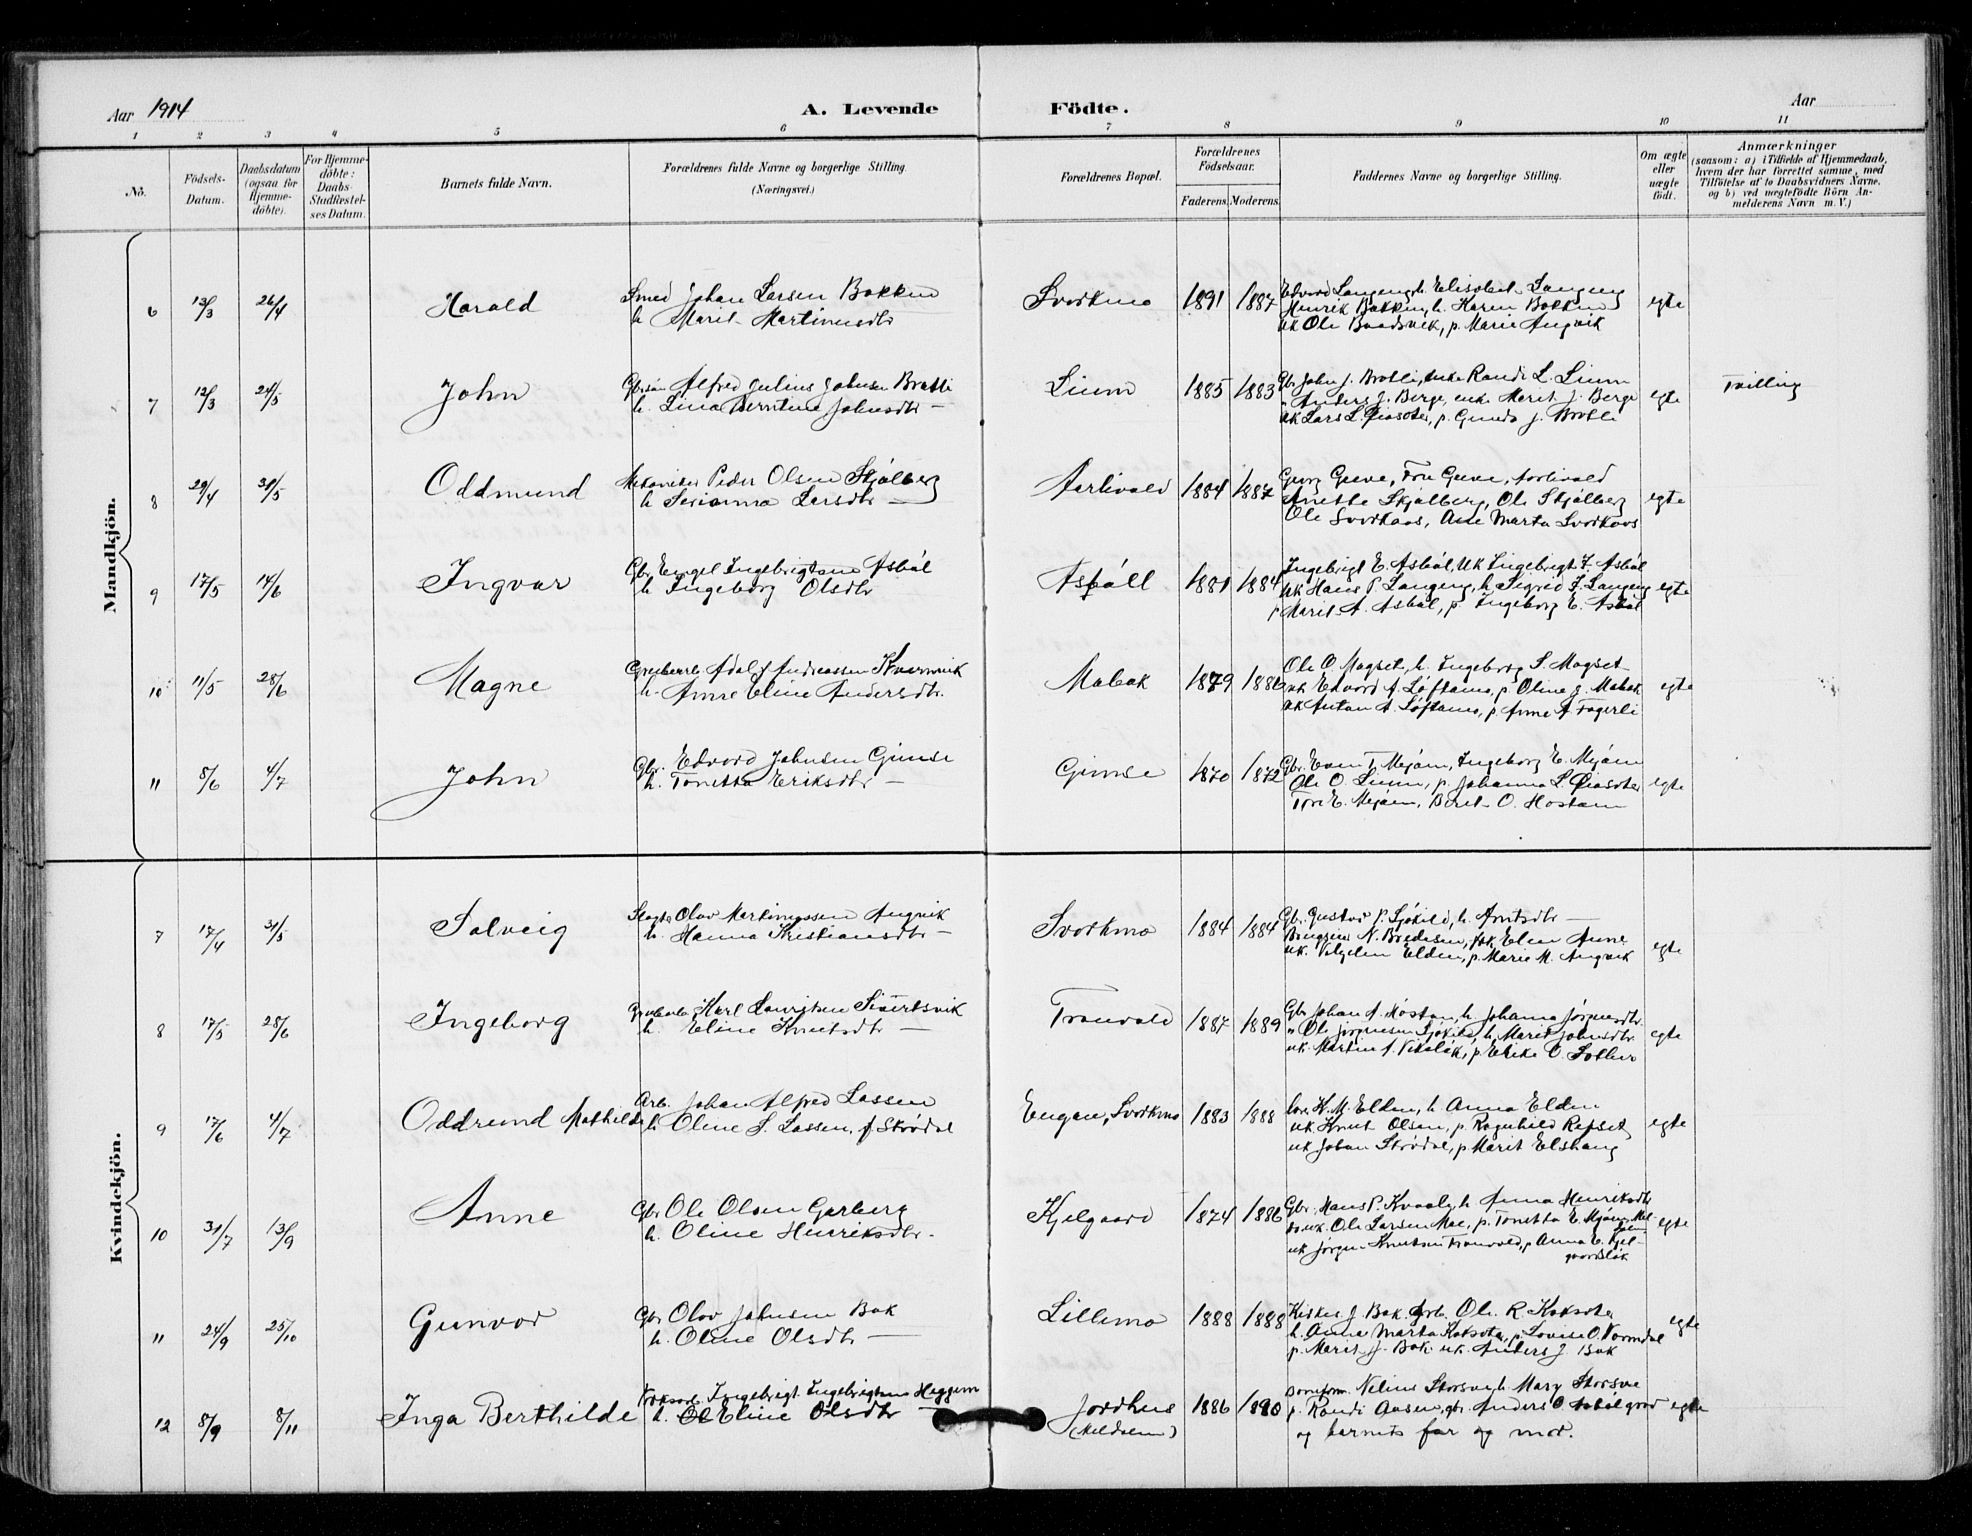 Aar 1914
A. Levende Födte.
Aar
1 2 3 4 5 6 7 8 9 10 11
No.
Födsels-Datum.
Daabsdatum (ogsaa for Hjemme-döbte).
For Hjemme-döbte: Daabs-Stadfæstel-ses Datum.
Barnets fulde Navn.
Forældrenes fulde Navne og borgerlige Stilling.
(Næringsvei.)
Forældrenes Bopæl.
Forældrenes Födselsaar.
Faderens. Moderens.
Faddernes Navne og borgerlige Stilling.
Om ægte eller uægte födt.
Anmærkninger
(saasom: a) i Tilfælde af Hjemmedaab,
hvem der har forrettet samme, med
Tilföielse af to Daabsvidners Navne,
og b) ved uægtefödte Börn An-
melderens Navn m. V.)
Mandkjön.
6 13/3 26/4 Harald
Smed Johan Larsen Bakken
h. Marit Martinusdtr
Svorkmo 1891 1887
Edvard Langeng, h. Elisabet Langeng
Henrik Bakken, h. Karen Bakken
uk Ole Baadsvik, p. Marie Angvik
egte
7 12/3 24/5 John
Gbr.søn Alfred Julius Johnsen Bratli
h. Lina Berntine Johnsdtr —
Lium 1885 1883
Gbr John J. Bratli, enke Randi L. Lium
" Anders J. Berge, enk. Marit J. Berge
uk Lars L. p. Gunda J. Bratli
egte
Tvilling
8 29/4 31/5 Oddmund
Mekaniker Peder Olsen Skjølberg
h Serianna Larsdtr —
Aarlivold 1884 1887
Georg Greve, Fru Greve, Aarlivold
Anetta Skjølberg, Ole Skjølberg
Ole Svorkaas, Ane Marta Svorkaas
egte
9 17/5 14/6 Ingvar
Gbr. Engel Ingebrigtsen Asbøl
h Ingeborg Olsdtr
Asbøll 1881 1884
Ingebrigt E. Asbøl, uk Ingebrigt F. Asbøl
uk Hans P. Langeng, h Sigrid F. Langeng
p Marit A. Asbøl, p. Ingeborg E. Asbøl
egte
10 11/5 28/6 Magne
Grubearb. Adolf Andreassen Kvernvik
h. Anne Eline Andersdtr.
Mabak 1879 1886
Ole O. Magset, h. Ingeborg S. Magset
uk Edvard A. Løftamo, p. Oline J. Mabak
uk Anton A. Løftamo, p Anne A. Fagerli
egte
11 8/6 4/7 John
Gbr. Edvard Johnsen Gimse
h. Tonetta Eriksdtr —
Gimse 1870 1872
Gbr. Even T. Mejøen, Ingeborg E. Mejøen
Ole O. Lium, p. Johanna L.
Tore E. Mejøen, Beret O. Høstøm
egte
Kvindekjön.
7 17/4 31/5 Solveig
Slagter Olav Martinussen Angvik
h. Hanna Kristiansdtr —
Svorkmo 1884 1884
Gbr. Gustav P. Sjøkild, h. Arntsdtr —
N. Bredesen, Elen Anne
uk. Vilhelm Elden, p. Marie M. Angvik
egte
8 17/5 28/6 Ingeborg
Grubearb. Karl Lauritsen Sivertsvik
h. Eline Knutsdtr —
Tranvold 1887 1889
Gbr Johan J. Høstøm, h. Johanna Jørgensdtr.
" Ole Jørgensen Sjøkild, h. Marit Johnsdtr.
uk. Martin A. p. Erika O
egte
9 17/6 4/7 Oddrund Mathilde
Arb. Johan Alfred Lassen
h Oline S. Lassen, f Strødal
Engan, Svorkmo 1883 1888
K. M. Elden, h Anna Elden
uk. Knut Olsen, p. Ragnhild Refset
uk Johan Strødal, p Marit Elshaug
egte
10 31/7 13/9 Anne
Gbr Ole Olsen Garberg
h. Oline Henriksdtr.
Kjelgaard 1874 1886
Gbr. Hans P. Kvaale, h Anna Henriksdtr
uk. Ole Larsen Moe, p. Tonetta E. Mjøen, Mel-
uk Jørgen Knutsen Tranvold, p Anna E. Kjel-
gaardsløk
egte
11 24/9 25/10 Gunvor
Gbr Olav Johnsen Bak
h. Oline Olsdtr —
Lillemo 1888 1888
J Bak Arb. Ole R
h. Anna Marta p. Lovise O. Vormdal
p. Marit J. Bak uk. Anders J. Bak
egte
12 8/9 8/11 Inga Berthilde
Ingebrigt Ingebrigtsen Heggem
h. Eline Olsdtr —
Jordhus
(Meldalen)
1886 1890
Nelius Storsve, h. Mary Storsve
p. Randi Aasen, gbr. Anders O
og barnets far og mor.
egte